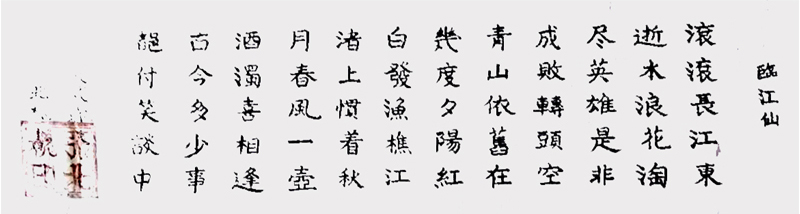 臨江仙
滚滚長江東
逝水浪花淘
尽英雄是非
成敗轉頭空
青山依舊在
幾度夕陽紅
白發漁樵江
渚上慣着秋
月春風一壺
酒濁喜相逢
古今多少事
付笑談中